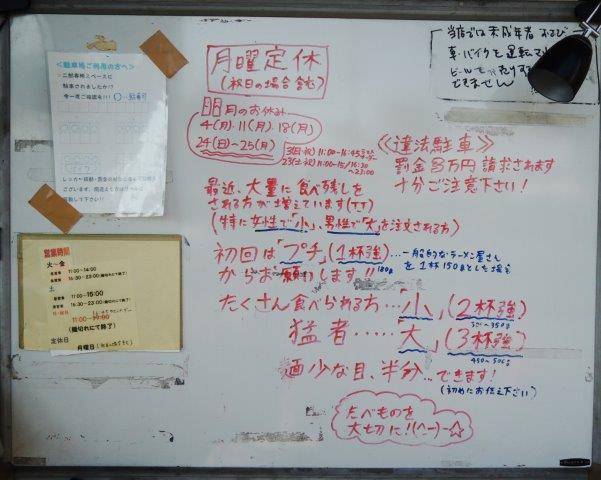 <駐車場ご利用の方へ>
二郎専用スペースに
駐車されましたか??
今一度ご確認を!!!
営業時間
火~金
11:00-14:00
16:30-23:00
土
11:00-15:00
16:30-23:00
11:00-
(麺切れにて終了)
定休日
月曜日
月曜定休
(祝日の場合含む)
月のお休み
4(月)・11(月)・18(月)
24(日)~25(月)
3(日・祝) 11:00-16:45
23(土・祝) 11:00-15/16:30
~23:00
当店では未成年者および
車・バイクを運転
ビールを
できません
≪違法駐車≫
罰金3万円請求されます
十分ご注意下さい!
最近、大量に食べ残しを
される方が増えています(T.T)
(特に女性で「小」、男性で「大」を注文される方)
初回は「プチ」(1杯強)…一般的なラーメン屋さん
を1杯150gとした場合
からお願いします!! 180g
たくさん食べられる方…「小」(2杯強)
猛者……「大」(3杯強)
麺少な目、半分…できます!
(初めにお伝え下さい)
たべものを
大切に!(^-^)-☆